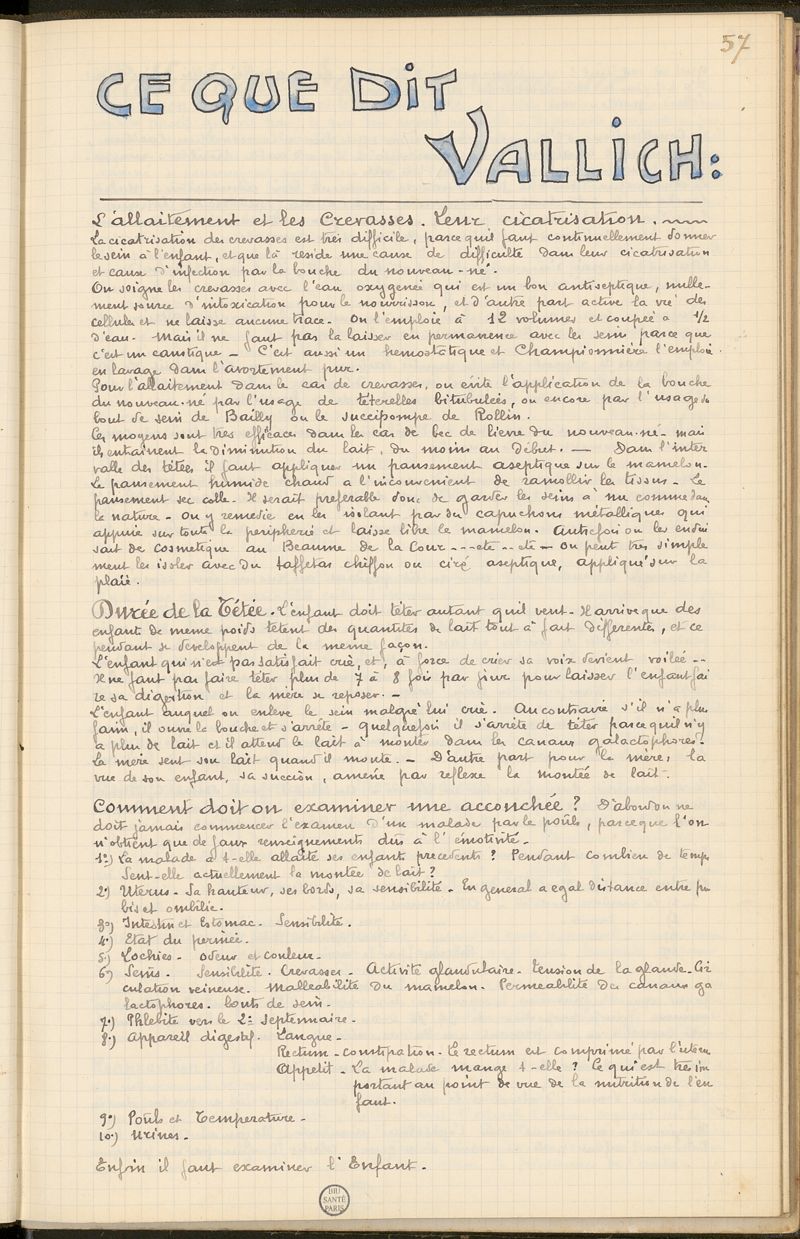 57
CE QUE DIT
VALLICH:
L'allaitement et les Crevasses. Leur cicatrisation.
La cicatrisation des crevasses est très difficile, parcequ'il faut continuellement donner
le sein à l'enfant, et que là reside une cause de difficulté dans leur cicatrisation
et cause d'infection par la bouche du nouveau-né.
On soigne les crevasses avec l'eau oxygeneé qui est un bon antiseptique, nulle-
ment source d'intoxication pour le nourrisson, et d'autre part active la vie des
cellules et ne laisse aucune trace. On l'emploie à 12 volumes et coupeé a 1/2
d'eau. Mais il ne faut pas la laisser en permanence avec les seins parce que
c'est un caustique - C'est aussi un hemostatique et Championnière l'emploie
en lavage dans l'avortement pur.
Pour l'allaitement dans le cas de crevasses, on évite l'application de la bouche
du nouveau-né par l'usage de téterelles bitubuleés, ou encore par l'usage du
bout de sein de Bailly ou le succipompe de Rollin.
Ces moyens sont tres efficaces dans les cas de bec de lievre du nouveau-né- mais
ils entraînent la diminution du lait, du moins au début. — Dans l'inter
valle des tétées il faut appliquer un pansement aseptique sur le mamelon-
Le pansement humide chaud a l'inconvenient de ramollir les tissus - Le
pansement sec colle. Il serait preferable donc de garder les seins à nu comme dans
la nature - on y remedie en les isolant par des capuchons métalliques qui
appuie sur toute la peripherié et laisse libre le mamelon. Autrefois on les endui
sait de cosmetique au Beaume de la Cour ---etc--etc - on peut très simple
ment les isoler avec du taffetas chiffon ou ciré aseptique, appliqué sur la
plaie.
Durée de la Tétée. L'enfant doit téter autant qu'il veut - Il arrive que des
enfants de meme poids tètent des quantites de lait tout à fait differentes, et ce
pendant se developpent de la meme façon.
L'enfant qui n'est pas satisfait crie, et, à force de crier sa voix devient voileé --
Il ne faut pas faire téter plus de 7 à 8 fois par jour pour laisser l'enfant fai
re sa digestion et la mère se reposer. -
L'enfant auquel on enleve le sein malgré lui crie. Au contraire s'il n'a plus
faim, il ouvre la bouche et s'arrête - quelquefois il s'arrête de téter parcequ'il n'y
a plus de lait et il attend le lait à monter dans les canaux galactophores.
La mère sent son lait quand il monte. - D'autre part pour la mère, la
vue de son enfant, sa succion, amène par reflexe la montée de lait.
Comment doit on examiner une accouchée ? D'abord on ne
doit jamais commencer l'examen d'un malade par le pouls, parceque l'on
n'obtient que de faux renseignements dus à l'émotivité -
1°) La malade a t-elle allaité ses enfants precedents ? Pendant combien de temps
Sent-elle actuellement la montée de lait ?
2°) Uterus - Sa hauteur, ses bords, sa sensibilité - En general a egal distance entre pu
bis et ombilic.
3°) Intestin et Estomac - Sensibilité.
4°) Etat du perinée.
5°) Lochies - odeur et couleur -
6°) Seins. Sensibilité. Crevasses - Activité glandulaire - tension de la glande. Cir
culation veineuse. Malleabilité du mamelon. Permeabilité des canaux ga
lactophores. bouts de sein.
7°) Phlebite vers le 2e Septennaire.
8°) Appareil digestif. Langue -
Rectum - constipation. Le rectum est comprimé par l'uterus
Appetit - La malade mange t-elle ? Ce qui est très im
portant au point de vue de la nutrition de l'en
fant.
9°) Pouls et Température -
10°) Urines -
Enfin il faut examiner l'Enfant -
BIU
SANTÉ
PARIS